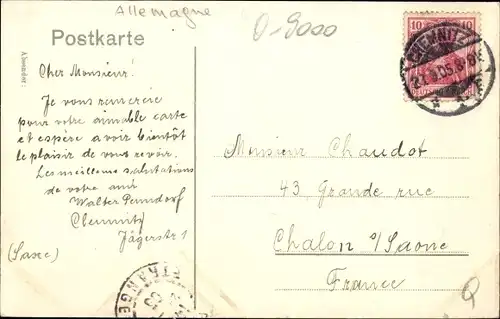 Allemagne
0-9000
Postkarte
Absender:
Cher Monsieur!
Je vous remercie
pour votre aimable carte
et espère a voir bientôt
le plaisir de vous revoir.
Les meilleures salutations
de votre ami
Walter Penndorf
Chemnitz
Jägerstr 1
(Saxe)
10 10
CHEMNITZ
Monsieur Chaudot
43 Grande rue
Chalon s/Saone
France